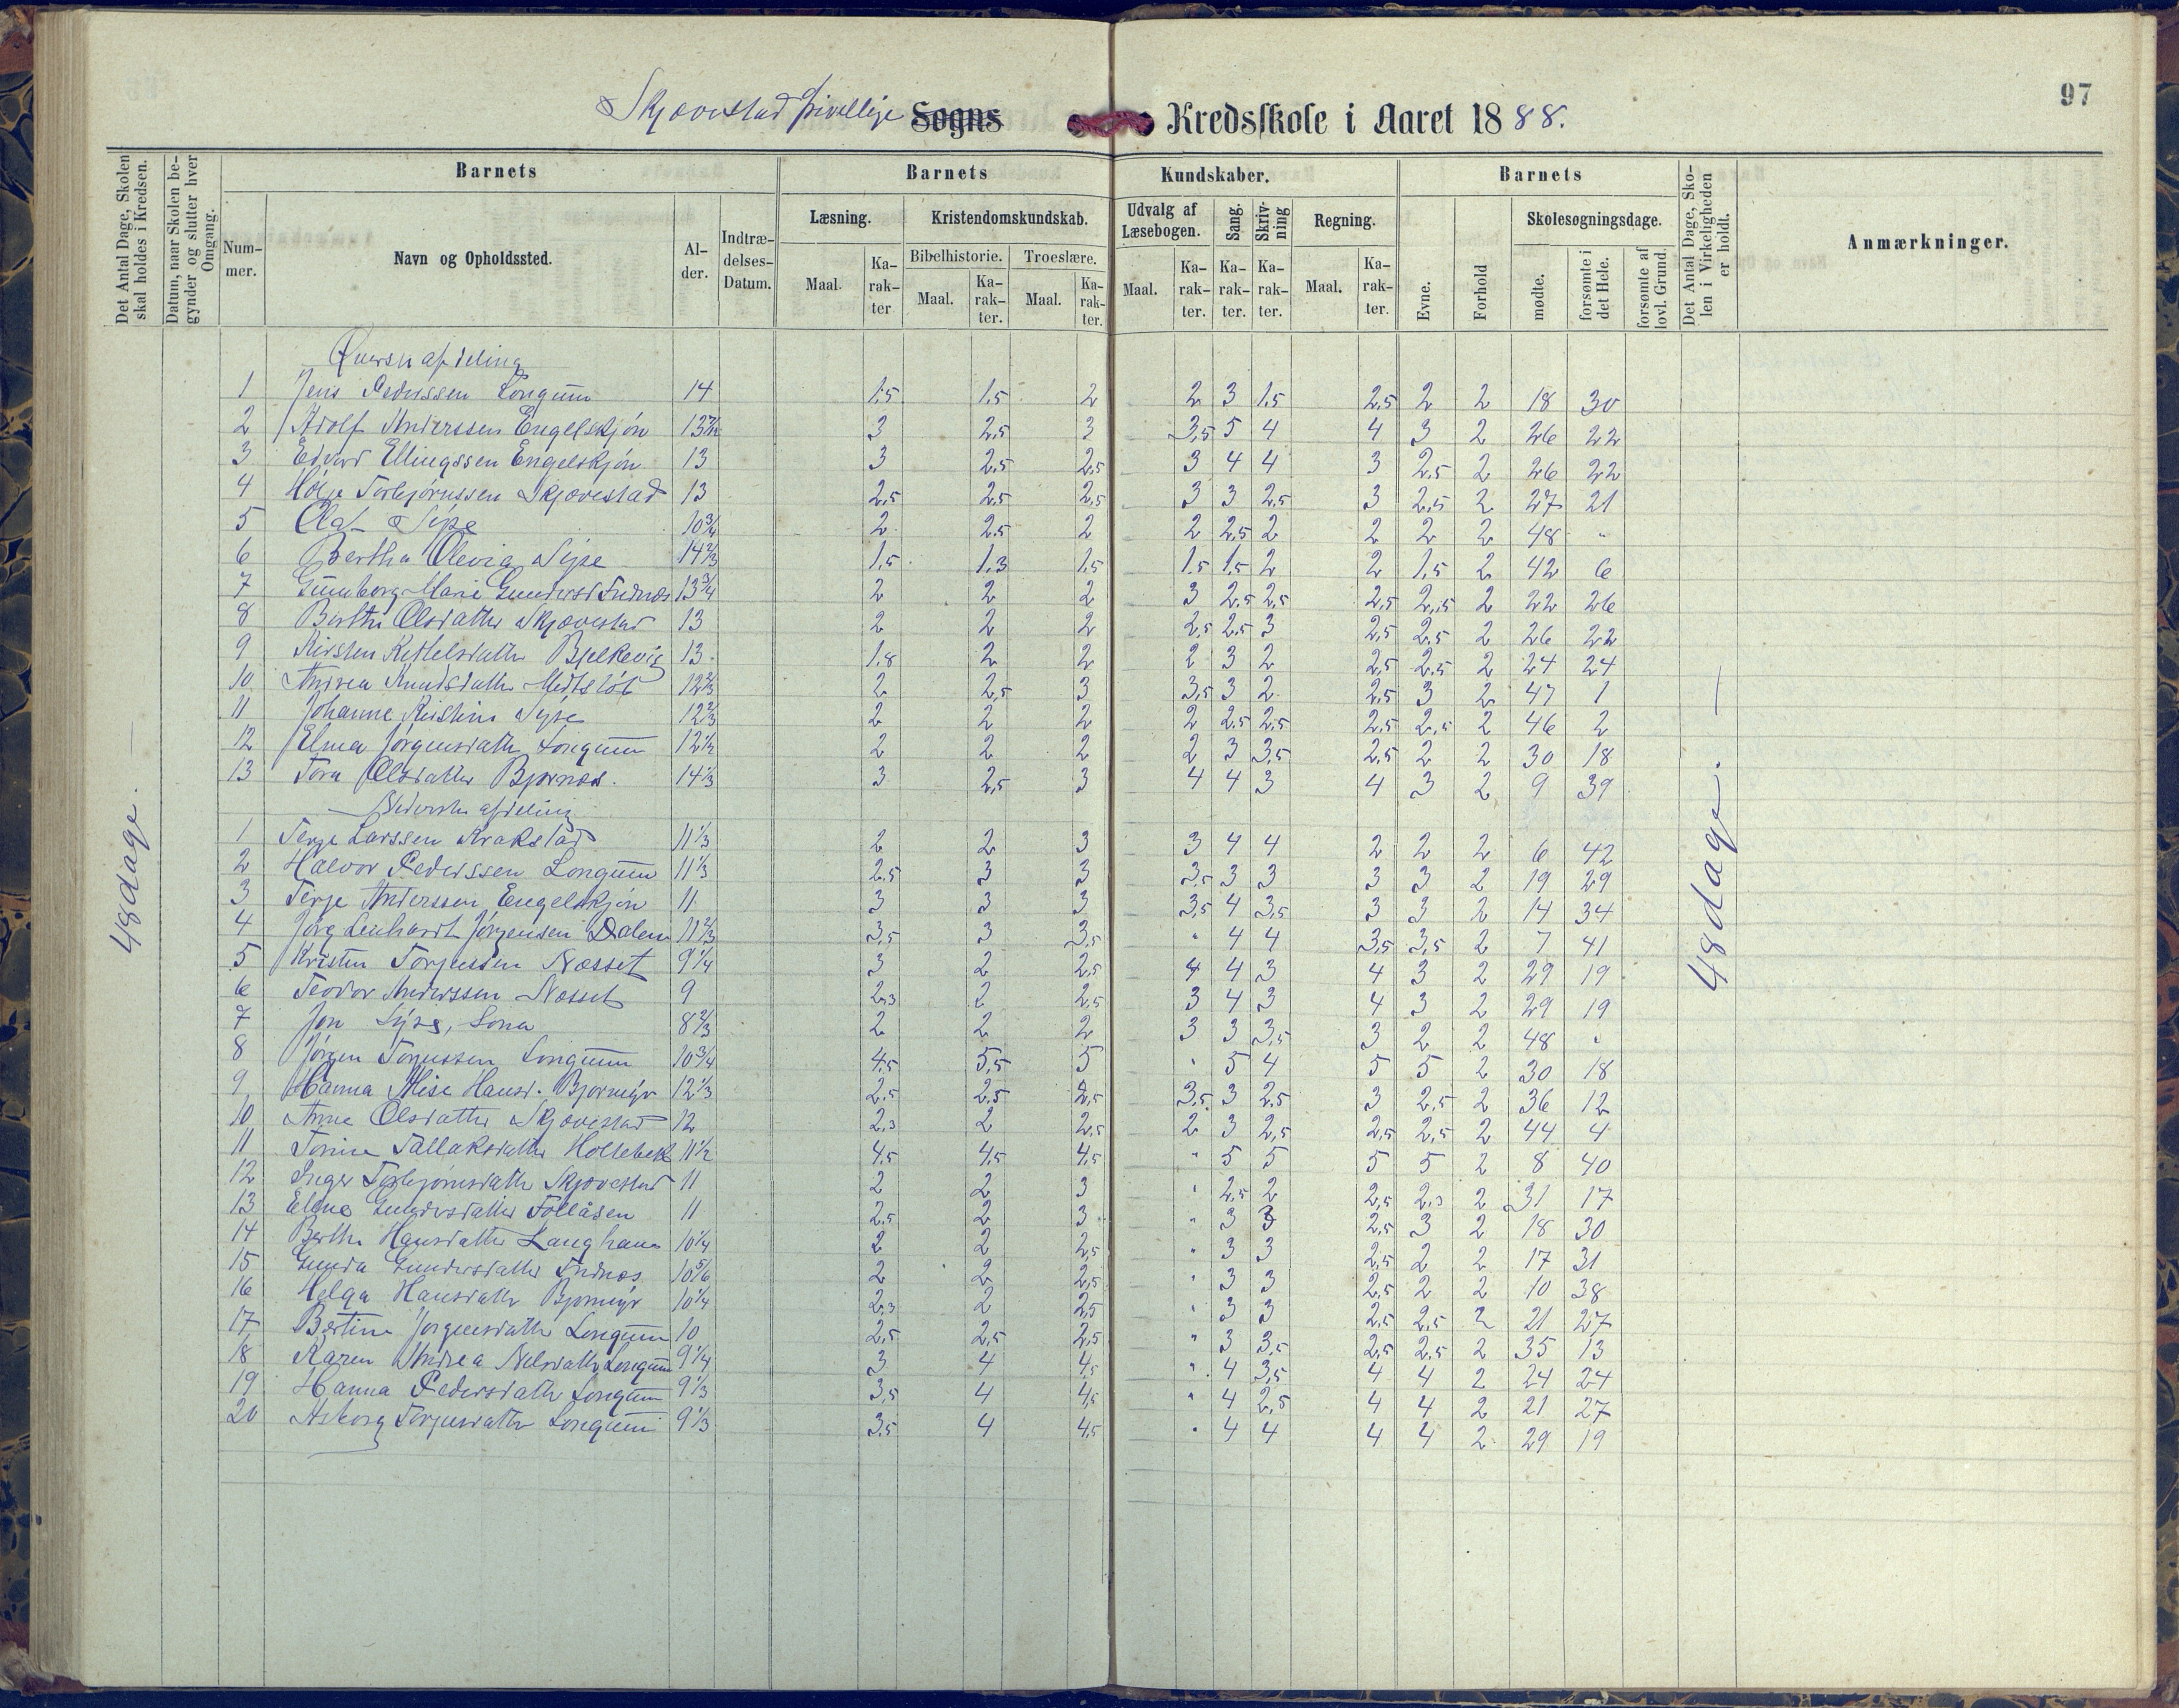 97
Skjævestad frivillige Sogns Kredsskole i Aaret 1888.
Det Antal Dage, Skolen skal holdes i Kredsen.
Datum, naar Skolen begynder og slutter hver Omgang.
Barnets
Barnets
Kundskaber.
Barnets
Det Antal Dage, Skolen i Virkeligheden er holdt.
Anmærkninger.
Nummer.
Navn og Opholdssted.
Alder.
Indtrædelses-Datum.
Læsning.
Kristendomskundskab.
Udvalg af Læsebogen.
Sang.
Skrivning
Regning.
Evne.
Forhold
Skolesøgningsdage.
Bibelhistorie.
Troeslære.
Maal.
Karakter
Maal.
Karakter.
Maal.
Karakter.
Maal.
Karakter.
Karakter.
Karakter.
Maal.
Karakter.
mødte.
forsømte i det Hele.
forsømte af lovl. Grund.
48 dage. —
48 dage. —
Øverste afdeling
1 Jens Pederssen Longum 14 1.5 1.5 2 2 3 1.5 2,5 2 2 18 30
2 Adolf Anderssen Engelskjøn 13 3 2,5 3 3,5 5 4 4 3 2 26 22
3 Edvard Ellingssen Engelskjøn 13 3 2,5 2,5 3 4 4 3 2,5 2 26 22
4 Torbjørnssen Skjævestad 13 2,5 2,5 2,5 3 3 2,5 3 2,5 2 27 21
5 Olaf Sype 10 3/4 2 2.5 2 2 2,5 2 2 2 2 48 "
6 Bertha Olevia Sype 14 2/3 1,5 1.3 1.5 1.5 1.5 2 2 1.5 2 42 6
7 Gunborg Marie Gundersd Indnæs 13 3/4 2 2 2 3 2.5 2,5 2,5 2,5 2 22 26
8 Berthe Olsdatter Skjævestad 13 2 2 2 2,5 2.5 3 2,5 2,5 2 26 22
9 Kirsten Kittelsdatter Bjelkevig 13 1.8 2 2 2 3 2 2,5 2.5 2 24 24
10 Andrea Knudsdatter 12 2/3 2 2,5 3 3,5 3 2 2,5 3 2 47 1
11 Johanne Kristine Sype 12 2/3 2 2 2 2 2.5 2.5 2,5 2,5 2 46 2
12 Elma Jørgensdatter Longum 12 1/2 2 2 2 2 3 3,5 2,5 2 2 30 18
13 Tora Olsdatter Bjørnæs. 14 1/3 3 2,5 3 4 4 3 4 3 2 9 39
Nederste afdeling
1 Terje Larssen Krakstad 11 1/3 2 2 3 3 4 4 2 2 2 6 42
2 Halvor Pederssen Longum 11 1/3 2.5 3 3 3,5 3 3 3 3 2 19 29
3 Terje Anderssen Engelskjøn 11 3 3 3 3,5 4 3,5 3 3 2 14 34
4 Jørg Lenhardt Jørgensen Dalen 11 2/3 3,5 3 3,5 " 4 4 3,5 3,5 2 7 41
5 Kristen Torjussen Næsset 9 1/4 3 2 2,5 4 4 3 4 3 2 29 19
6 Teodor Anderssen Næsset 9 2,3 2 2,5 3 4 3 4 3 2 29 19
7 Jon Sype, Lona 8 2/3 2 2 2 3 3 3,5 3 2 2 48 "
8 Jørgen Torjussen Longum 10 3/4 4,5 5,5 5 " 5 4 5 5 2 30 18
9 Hanna Elise Hansd. Bjormyr 12 1/3 2,5 2,5 2,5 3,5 3 2.5 3 2,5 2 36 12
10 Anne Olsdatter Skjævestad 12 2,3 2 2,5 2 3 2,5 2,5 2,5 2 44 4
11 Tomine Tallaksdatter Holtebek 11 1/2 4,5 4,5 4,5 " 5 5 5 5 2 8 40
12 Inger Torbjørnsdatter Skjævestad 11 2 2 3 " 2,5 2 2,5 2,3 2 31 17
13 Elene Gundersdatter Follåsen 11 2.5 2 3 " 3 3 2,5 3 2 18 30
14 Berthe Hansdatter Langhaue 10 1/4 2 2 2,5 " 3 3 2,5 2 2 17 31
15 Gunda Gundersdatter Indnæs 10 5/6 2 2 2,5 " 3 3 2,5 2 2 10 38
16 Helga Hansdatter Bjormyr 10 1/4 2,3 2 2,5 " 3 3 2,5 2,5 2 21 27
17 Bertine Jørgensdatter Longum 10 2,5 2,5 2,5 " 3 3,5 2,5 2,5 2 35 13
18 Karen Andrea Nilsdatter Longum 9 1/4 3 4 4,5 " 4 3,5 4 4 2 24 24
19 Hanna Pedersdatter Longum 9 1/3 3,5 4 4,5 " 4 2,5 4 4 2 21 27
20 Asborg Torjusdatter Longum 9 1/3 3.5 4 4,5 " 4 4 4 4 2 29 19